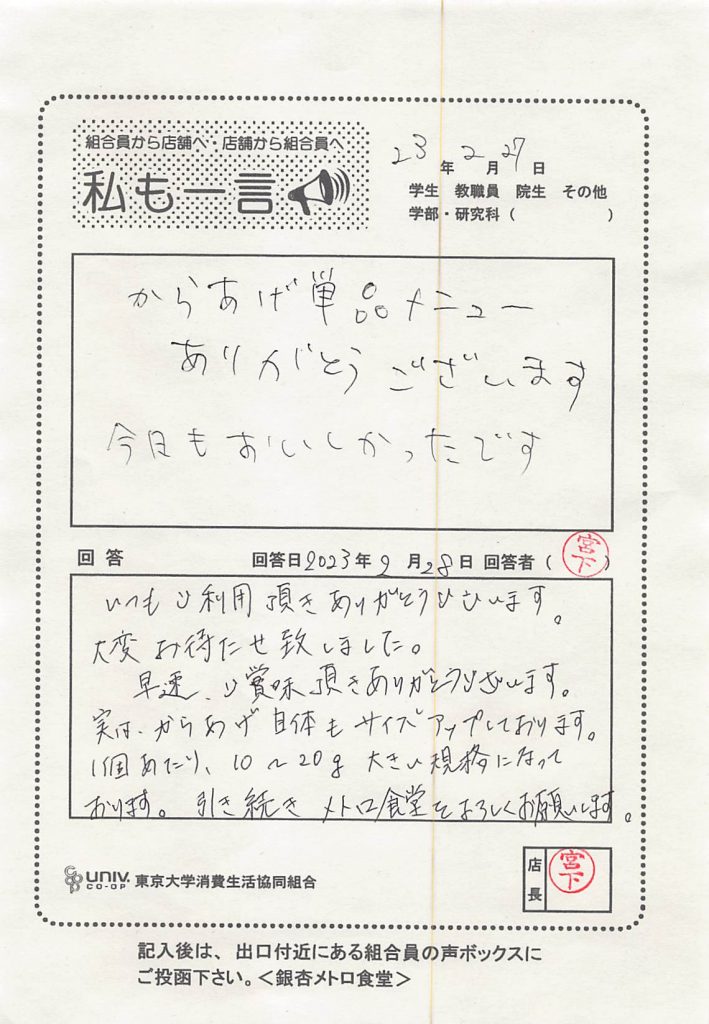 組合員から店舗へ・店舗から組合員へ
私も一言
23年2月27日
学生 教職員 院生 その他
学部・研究科( )
からあげ単品メニュー
ありがとうございます
今日もおいしかったです
回答 回答日2023年2月28日 回答者(宮下)
いつもご利用頂きありがとうございます。
大変お待たせ致しました。
早速、ご賞味頂きありがとうございます。
実は、からあげ自体もサイズアップしております。
1個あたり、10〜20g 大きい規格になって
おります。引き続きメトロ食堂をよろしくお願いします。
店長 宮下
COOP UNIV. CO-OP 東京大学消費生活協同組合
記入後は、出口付近にある組合員の声ボックスに
ご投函下さい。<銀杏メトロ食堂>